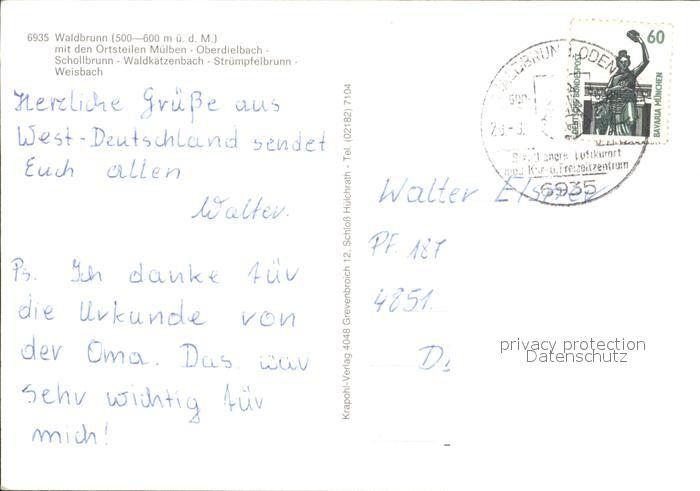 6935 Waldbrunn (500—600 m ü. d. M.)
mit den Ortsteilen Mülben - Oberdielbach -
Schollbrunn - Waldkatzenbach - Strümpfelbrunn -
Weisbach
Herzliche Grüße aus
West-Deutschland sendet
Euch allen
Walter.
Ps. Ich danke für
die Urkunde von
der Oma. Das war
sehr wichtig für
mich!
Krapohl-Verlag 4048 Grevenbroich 12, Schloß Hülchrath - Tel. (02182) 7104
60
DEUTSCHE BUNDESPOST
BAVARIA MÜNCHEN
Luftkurort
u. Freizeitzentrum
6935
Walter
PF. 187
4851.
privacy protection
Datenschutz